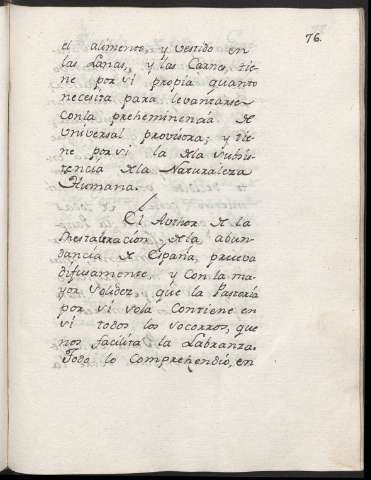 76.
el alimento, y vestido en
las Lanas, y las Carnes, tie-
ne por si propia quanto
necesita para levantarse
conla preheminencia de
universal proveedora; y tie-
ne por si la dela subsis-
tencia dela Naturaleza
Humana.
El Author de la
Restauracion dela abun-
dancia de España, prueva
difusamente, y con la ma-
yor solidez, que la Pastoria
por si sola contiene en
si todos los socorros, que
nos facilita la Labranza.
Todo lo comprehendió, en